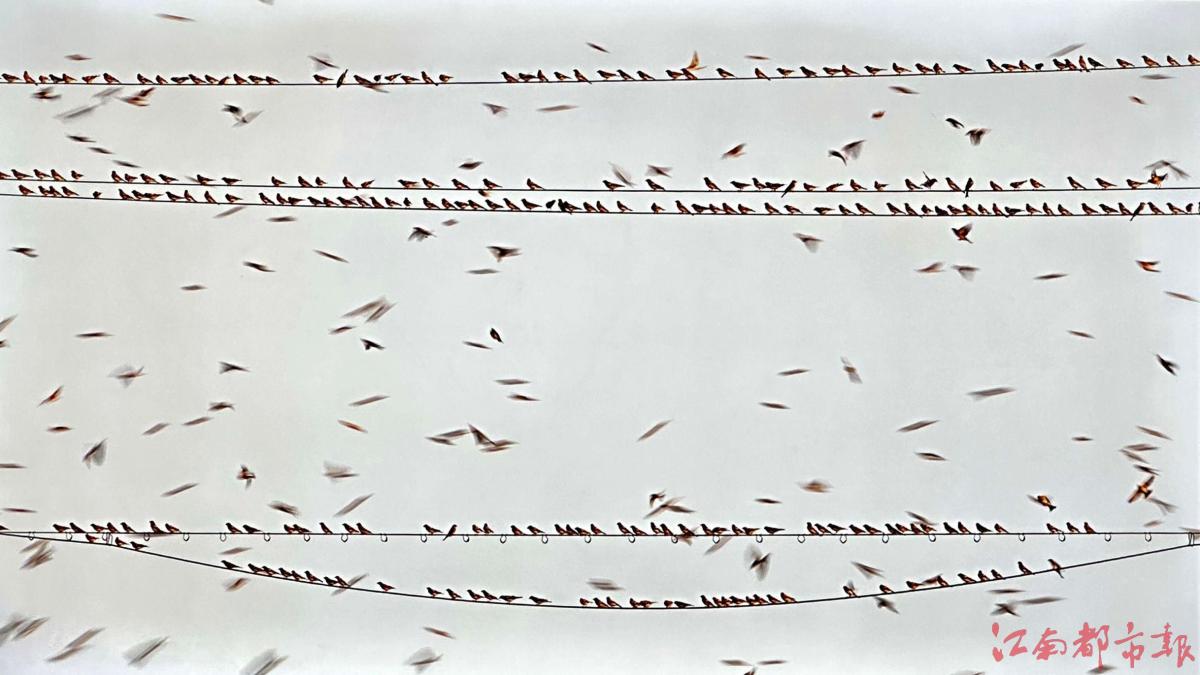 江南都市報